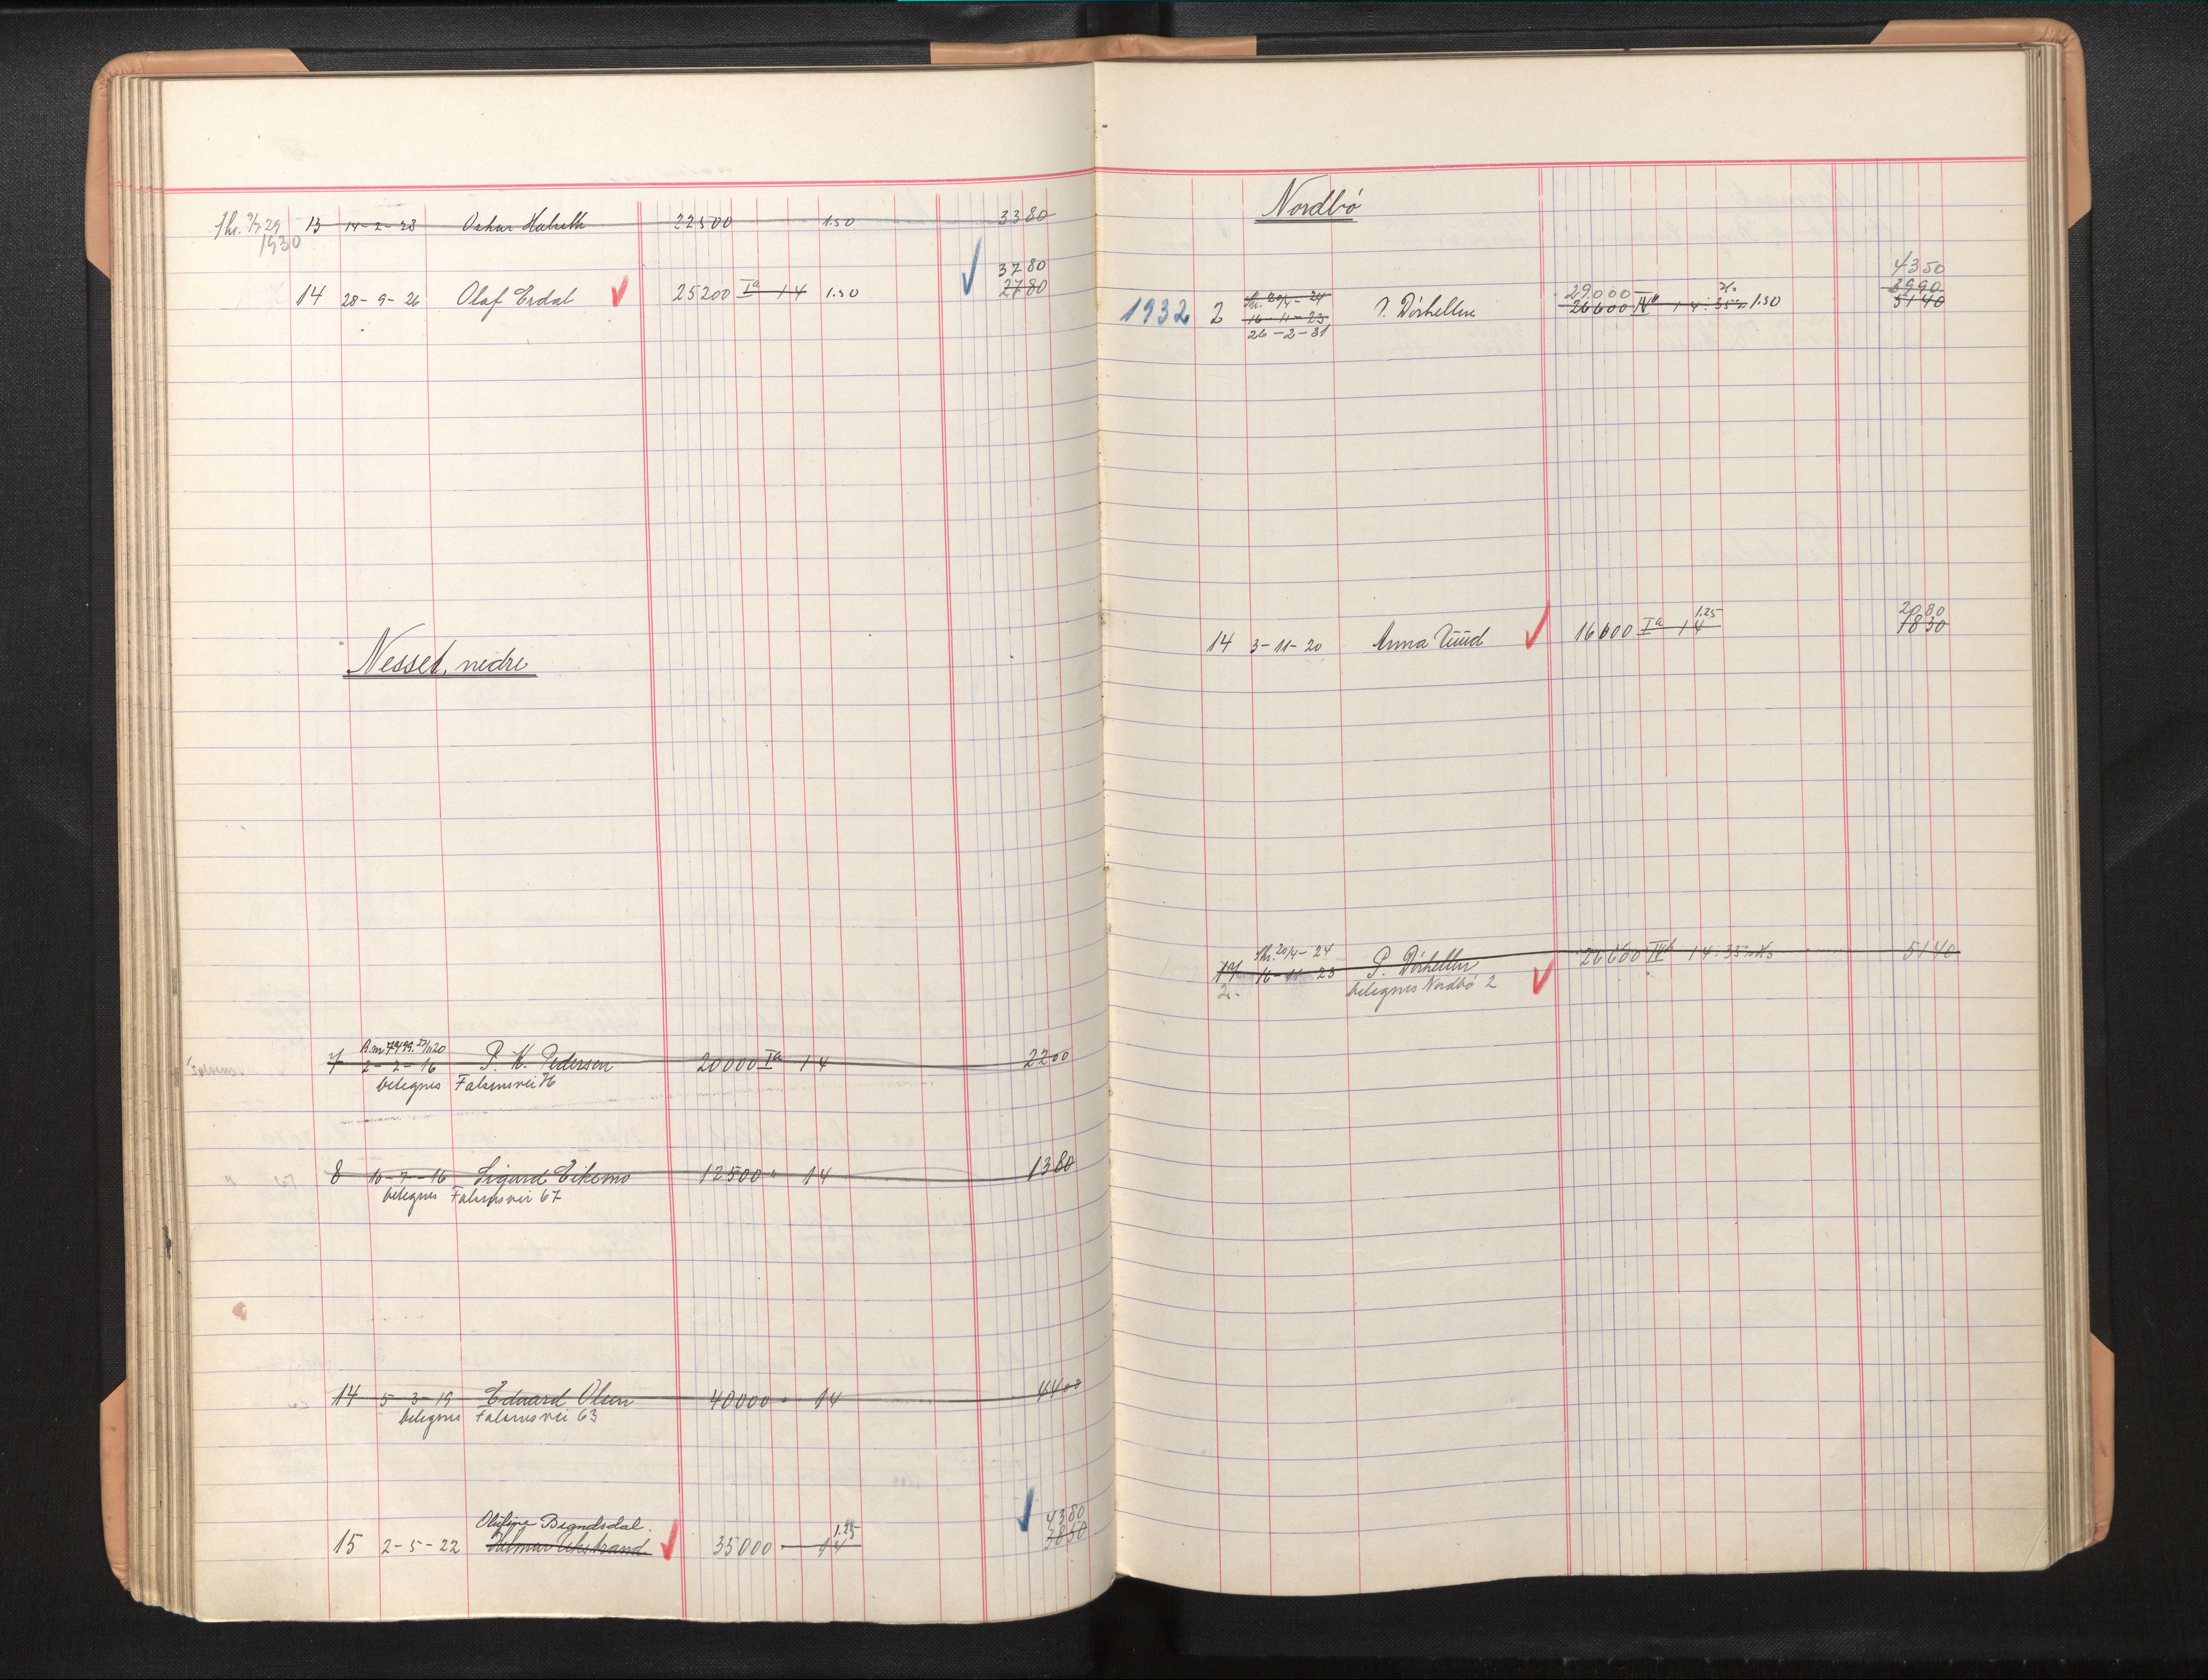 9/7 29 13 14-2-28 Oskar 22500 1.50 3380
1930
3780
14 28-9-26 Olaf Erdal 25200 Ia 14 1.50 2780
Nesset, nedre
2/11 20
7 2-2-16 P. K. Pedersen 20000 Ia 14 2200
betegnes
8 16-7-16 Sigurd Eikemo 12500 " 14 1380
betegnes 67
14 5-3-19 Edvard Olsen 40000 " 14 4400
betegnes 63
1.25 4380
15 2-5-22 35000 14 3850
Nordbö
4350
20/4-24 29000 3990
1932 2 16-11-23 26600 IVb 14:35 1.50 5140
26-2-31
1.25 2080
14 3-11-20 Anna 16600 Ia 14 1830
20/4-24
17 16-11-23 P. 26600 IVb 14:35 5140
2. betegnes Nordbö 2